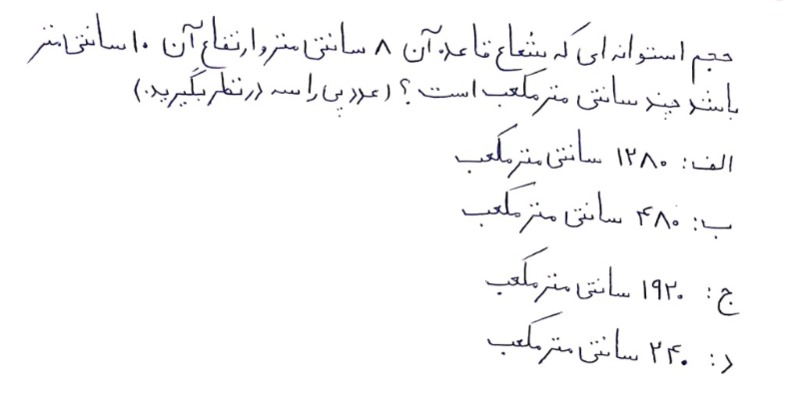 حجم استوانه ای که شعاع قاعده آن ۸ سانتی متر و ارتفاع آن ۱۰ سانتی متر
باشد چند سانتی متر مکعب است ؟ (عدد پی را سه در نظر بگیرید.)
الف : ۱۲۸۰ سانتی متر مکعب
ب : ۴۸۰ سانتی متر مکعب
ج : ۱۹۲۰ سانتی متر مکعب
د : ۲۴۰ سانتی متر مکعب